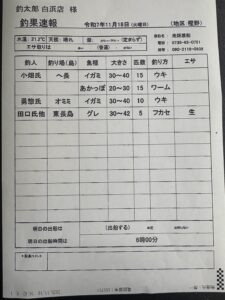 釣太郎 白浜店 様
釣果速報 令和7年11月18日(火曜日) (地区 椿野)
水温: 21.2℃ 天候: 晴れ
エサ取りは (普通)
釣人 釣り場(島) 魚種 大きさ 匹数 釣り方 エサ
小畑氏 ヘ長 イガミ 30〜40 15 ウキ
あかっぽ 20〜30 15 ワーム
勇惣氏 オミミ イガミ 30〜40 10 ウキ
田口氏他 東長島 グレ 30〜42 5 フカセ 生
明日の出船は (出船する)
明日の出船時間は 6時00分